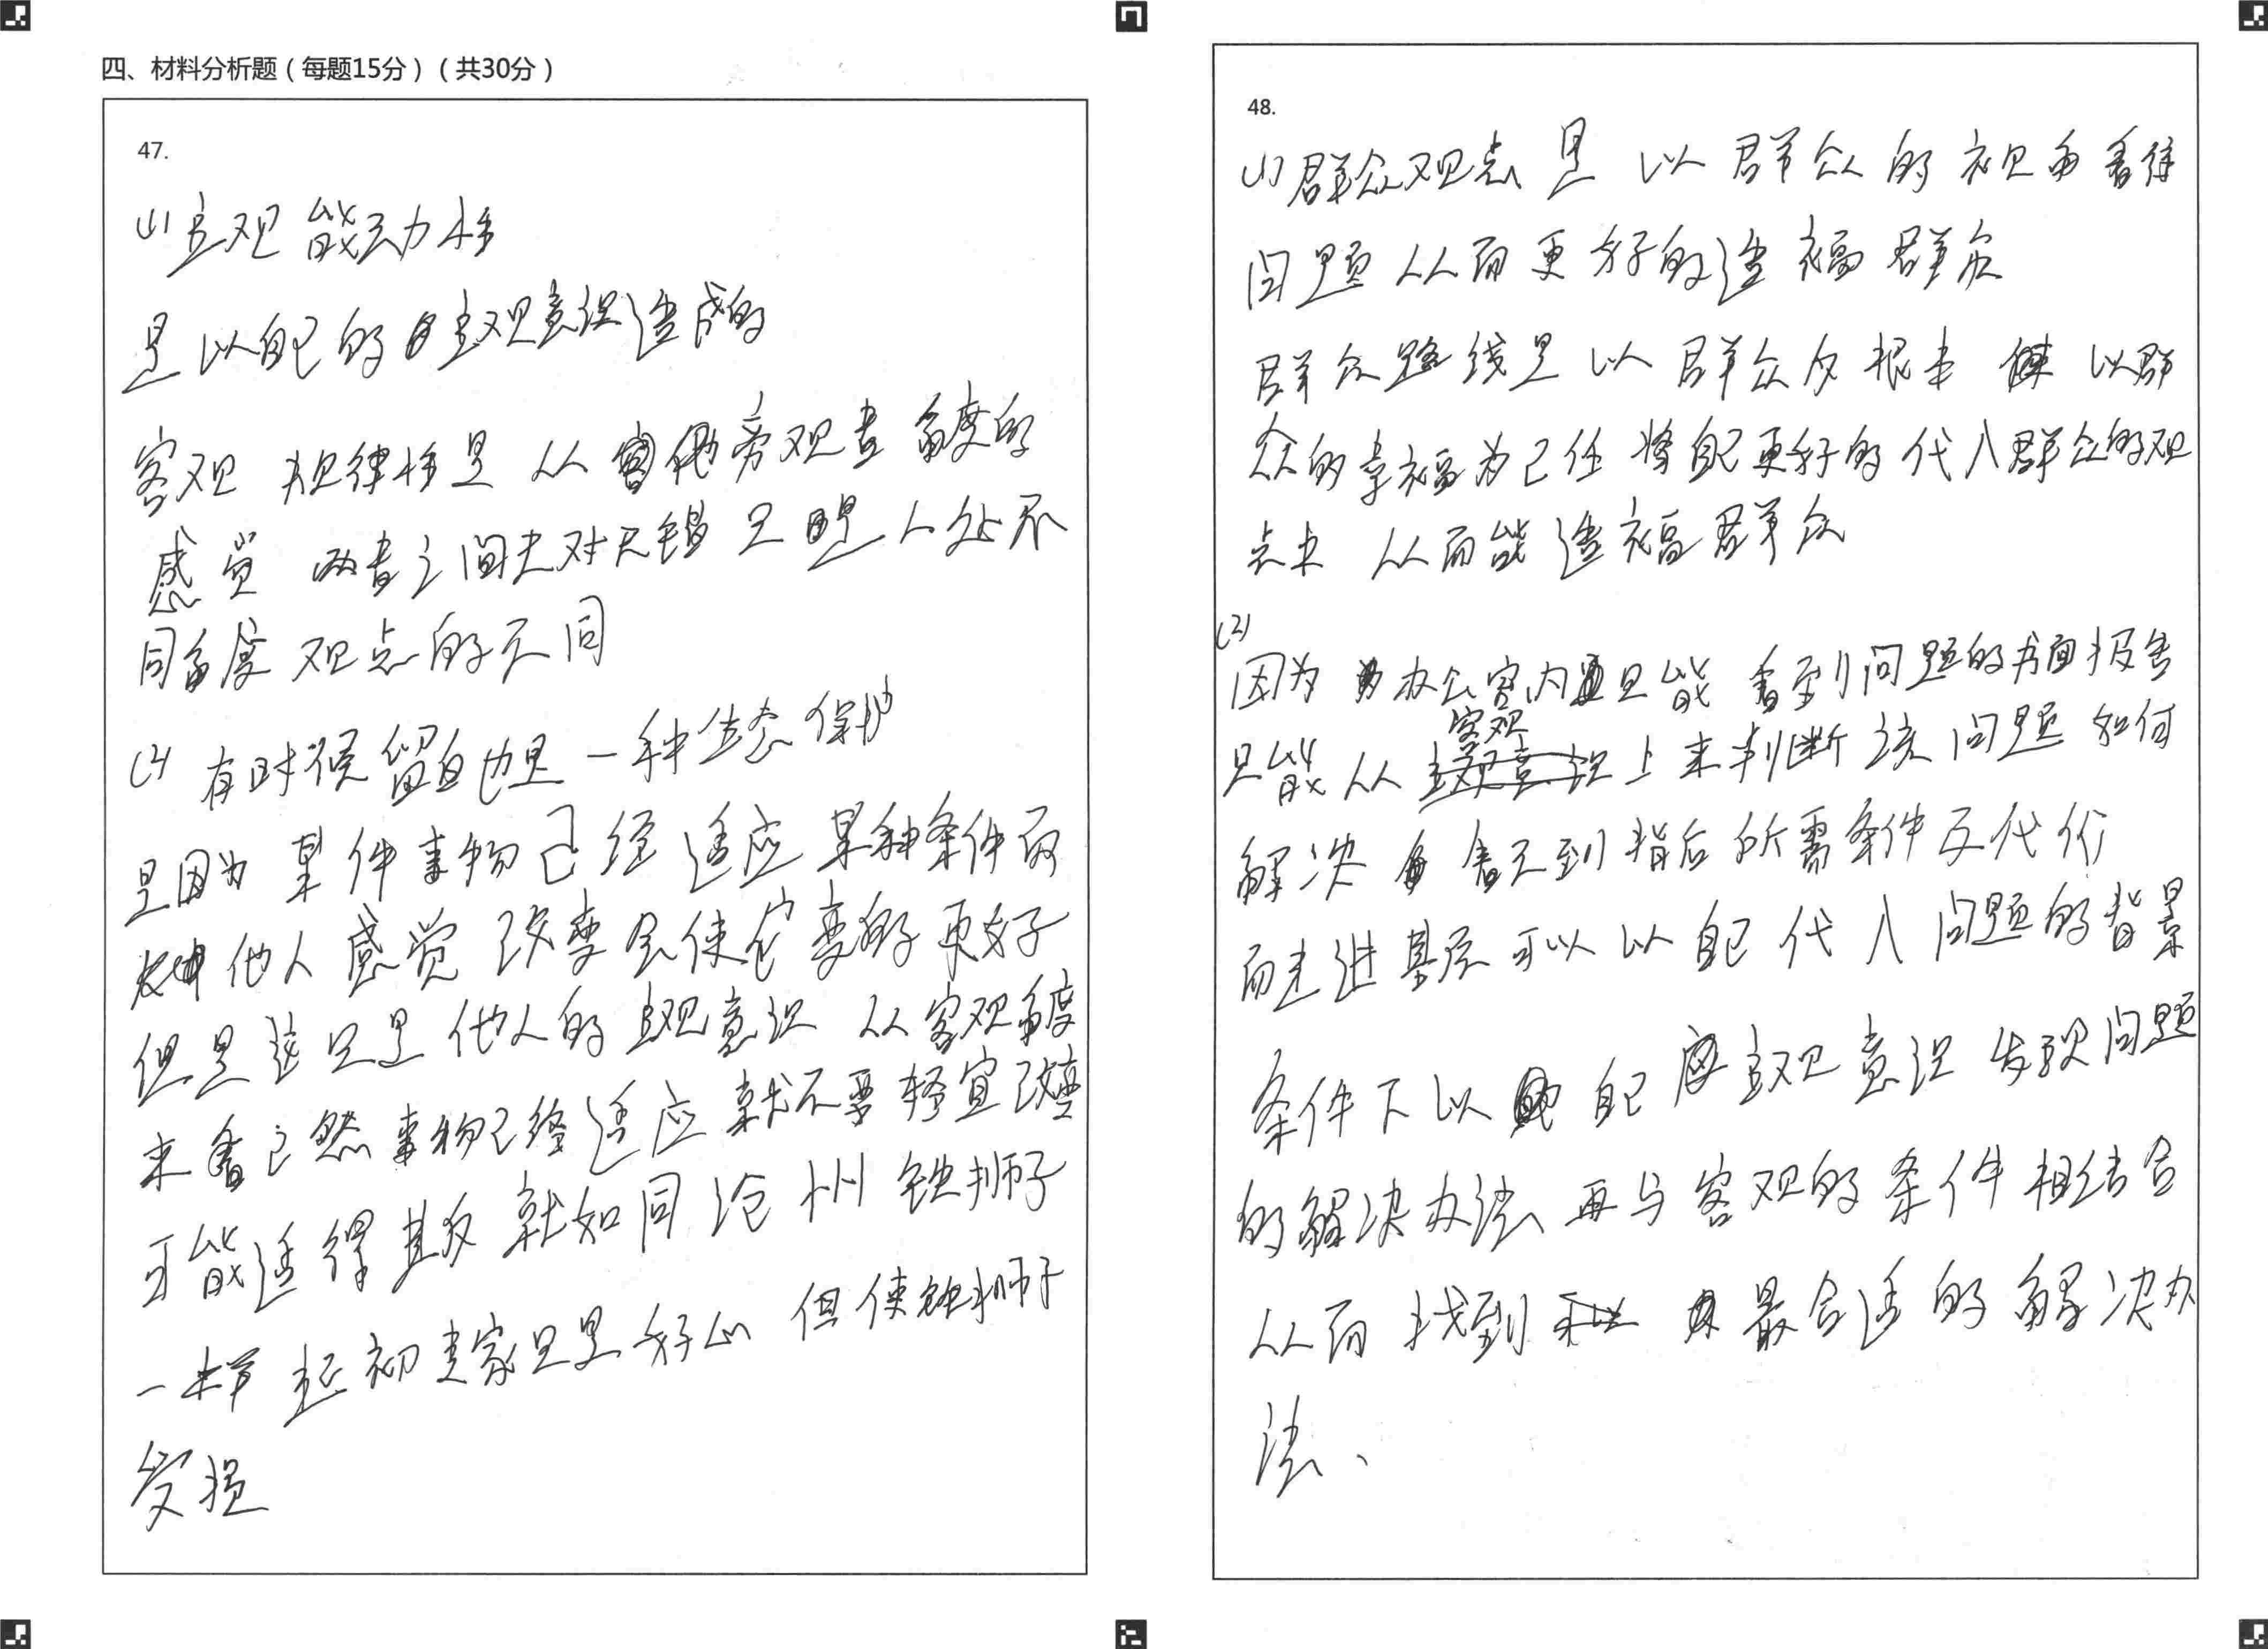 四、材料分析题（每题15分）（共30分）
47.
(1)主观能动性
是以自己的主观意识造成的
客观规律性是从其他旁观者角度的
感觉 两者之间无对无错 只是人处不
同角度观点的不同
(2)有时候留白也是一种生态保护
是因为某件事物已经适应某种条件而
他人感觉改变会使它变的更好
但是这只是他人的主观意识 从客观角度
来看已然事物已经适应就不要轻宜改变
可能适得其反就如同沧州铁狮子
一样 起初专家只是好心 但使铁狮子
受损
48.
(1)群众观点是以群众的视角看待
问题从而更好的造福群众
群众路线是以群众为根本 以群
众的幸福为己任 将自己更好的代入群众的观
点中 从而能造福群众
(2)
因为办公室内只能看到问题的书面报告
只能从客观上来判断该问题如何
解决 看不到背后所需条件及代价
而走进基层可以以自己代入问题的背景
条件下以自己主观意识发现问题
的解决办法再与客观的条件相结合
从而找到最合适的解决办
法、